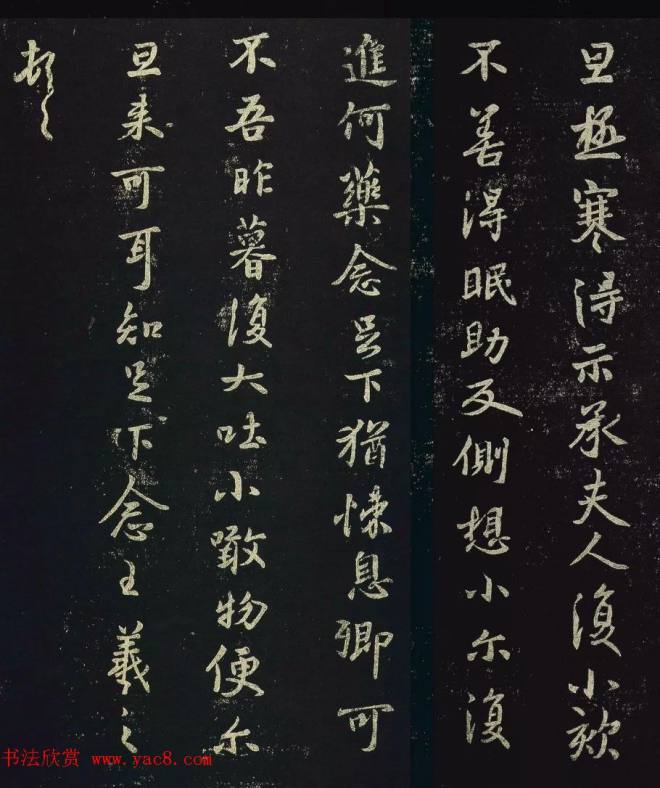 旦極寒得示承夫人復小欬
不善得眠助反側想小尓復
進何藥念足下猶悚息卿可
不吾昨暮復大吐小噉物便尓
旦来可耳知足下念王羲之
頓首
书法欣赏 www.yac8.com